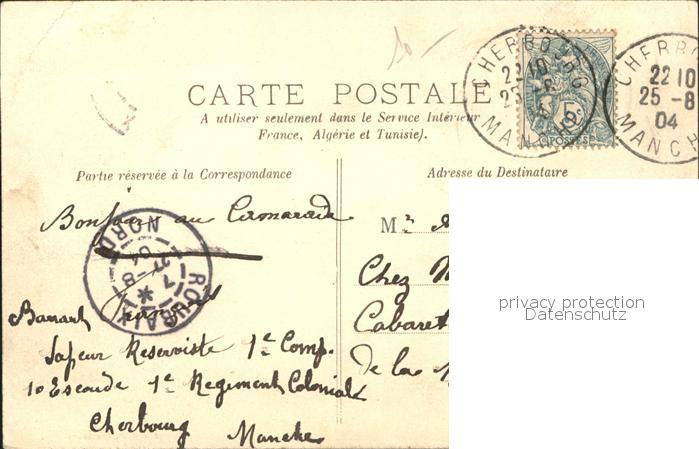 CARTE POSTALE
A utiliser seulement dans le Service Intérieur
France, Algérie et Tunisie).
Partie réservée à la Correspondance
Adresse du Destinataire
CHERBOURG
22 10
25 -8
04
MANCHE
5c
POSTES
CHERBO
22 10
25 -8
04
MANCH
10-
Bonjour au Camarade
ROUBAIX
NORD
7
27-8
04
Sapeur Reserviste 1e Comp.
10 Escouade 1e Regiment Colonial
Cherbourg
Manche
Mr
Chez
Cabaret
de la
privacy protection
Datenschutz